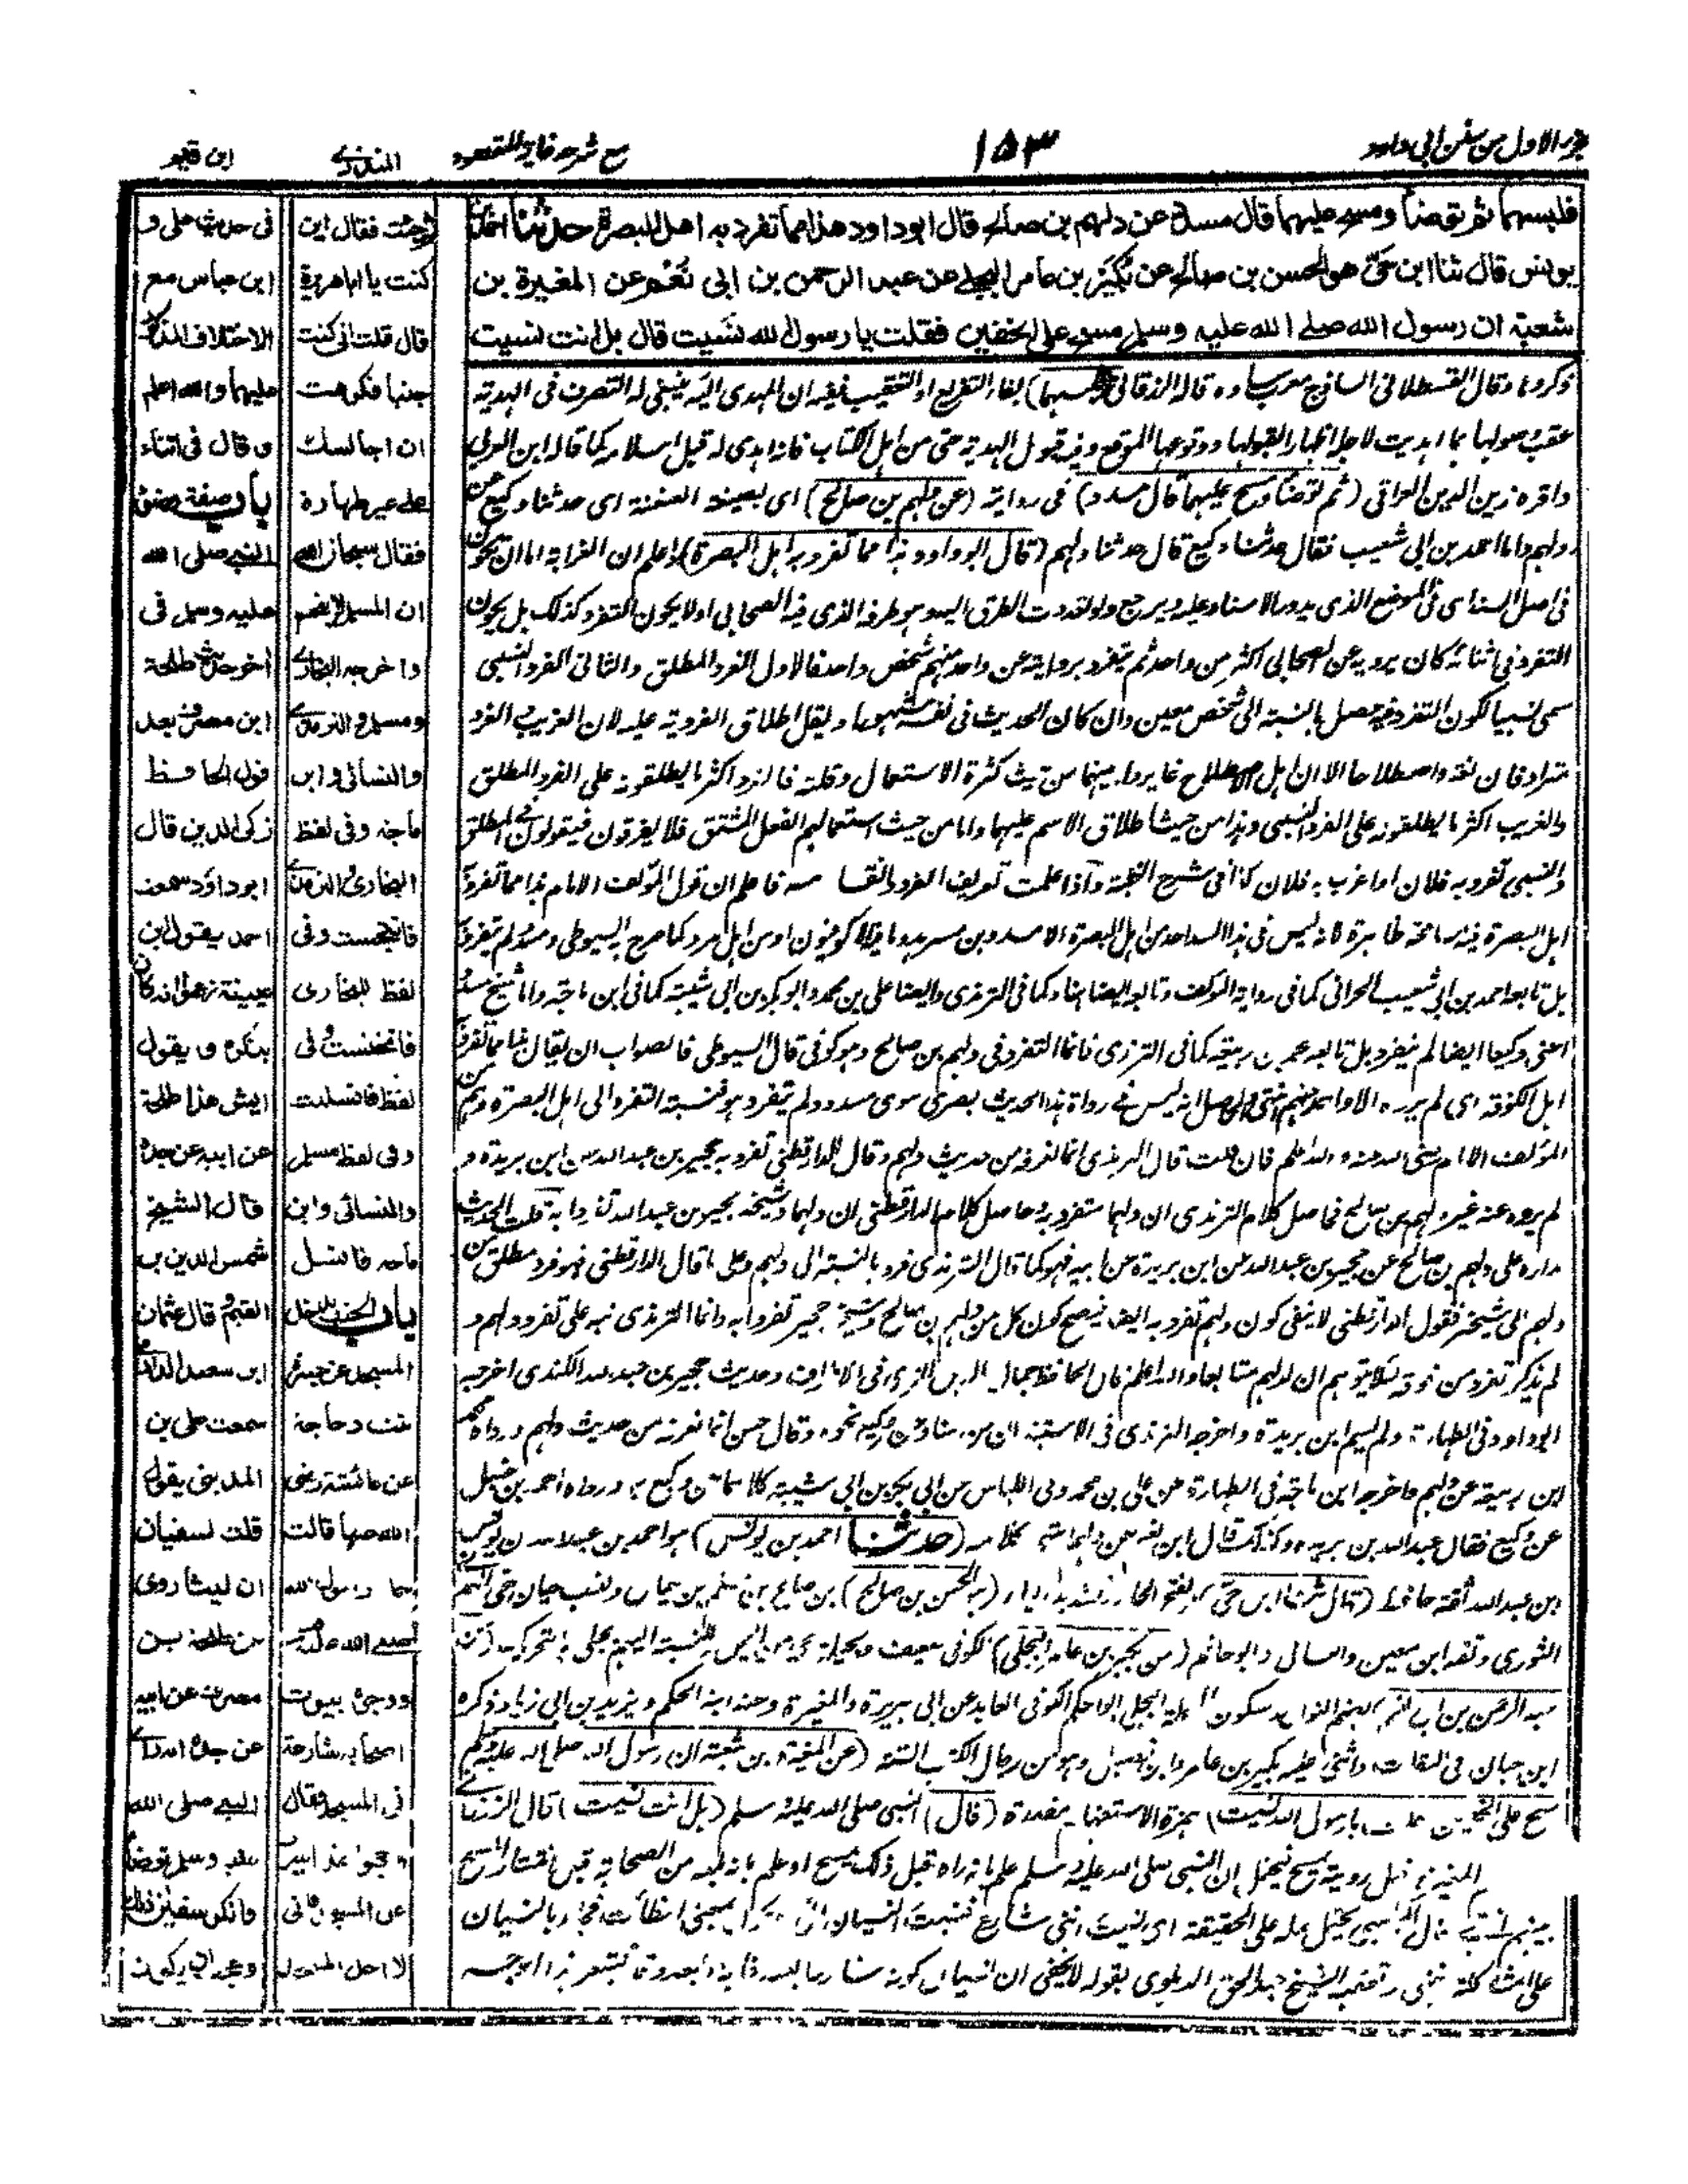 جزء الاول من سنن ابی داود
١٥٣
مع شرحه غاية المقصود
المنذری
ابن قيم
فلبسهما ثم توضأ ومسح عليهما قال مسدد عن دلهم بن صالح قال ابو داود هذا مما تفرد به اهل البصرة حدثنا احمد بن
يونس قال ثنا ابن حی هو الحسن بن صالح عن بكير بن عامر البجلی عن عبد الرحمن بن ابی نعم عن المغيرة بن
شعبة ان رسول الله صلی الله عليه وسلم مسح علی الخفين فقلت يا رسول الله نسيت قال بل انت نسيت
وقال القسطلانی قاله الزرقانی (فلبسهما) بفاء التفريع او التعقيب ففيه ان المهدی اليه ينبغی له التصرف فی الهدية
عقب وصولها بما اهديت لاجله اظهارا لقبولها ووقوعها الموقع وفيه قبول الهدية حتی من اهل الكتاب فانه اهدی له قبل اسلامه كما قاله ابن العربی
واقره زين الدين العراقی (ثم توضأ ومسح عليهما قال مسدد) فی روايته (عن دلهم بن صالح) ای بصيغة العنعنة ای حدثنا وكيع عن
دلهم واما احمد بن ابی شعيب فقال حدثنا وكيع قال حدثنا دلهم (قال ابو داود هذا مما تفرد به اهل البصرة) واعلم ان الغرابة اما ان تكون
فی اصل السند ای فی الموضع الذی يدور الاسناد عليه ويرجع ولو تعددت الطرق اليه وهو طرفه الذی فيه الصحابی او لا يكون التفرد كذلك بل يكون
التفرد فی اثنائه كان يرويه عن الصحابی اكثر من واحد ثم يتفرد بروايته عن واحد منهم شخص واحد فالاول الفرد المطلق والثانی الفرد النسبی
سمی نسبيا لكون التفرد فيه حصل بالنسبة الی شخص معين وان كان الحديث فی نفسه مشهورا ويقل اطلاق الفردية عليه لان الغريب والفرد
مترادفان لغة واصطلاحا الا ان اهل الاصطلاح غايروا بينهما من حيث كثرة الاستعمال وقلته فالفرد اكثر ما يطلقونه علی الفرد المطلق
والغريب اكثر ما يطلقونه علی الفرد النسبی وهذا من حيث اطلاق الاسم عليهما واما من حيث استعمالهم الفعل المشتق فلا يفرقون فيقولون فی المطلق
والنسبی تفرد به فلان او اغرب به فلان كذا فی شرح النخبة واذا علمت تعريف الفرد فاعلم ان قول المؤلف الامام هذا مما تفرد به
اهل البصرة فيه مسامحة ظاهرة لانه ليس فی هذا السند احد من اهل البصرة الا مسدد بن مسرهد كما صرح به السيوطی ومسدد لم يتفرد به
بل تابعه احمد بن ابی شعيب الحرانی كما فی رواية المؤلف وتابعه ايضا هناد كما فی الترمذی وايضا علی بن محمد وابو بكر بن ابی شيبة كما فی ابن ماجة واما شيخ مسدد
اعنی وكيعا ايضا لم ينفرد بل تابعه محمد بن ربيعة كما فی الترمذی فانما التفرد فی دلهم بن صالح وهو كوفی قال السيوطی فالصواب ان يقال هذا مما تفرد به
اهل الكوفة ای لم يروه الا واحد منهم انتهی والحاصل انه ليس فی رواة هذا الحديث بصری سوی مسدد ولم يتفرد هو فنسبة التفرد الی اهل البصرة وهم من
المؤلف الامام رضی الله عنه والله اعلم فان قلت قال الترمذی انما نعرفه من حديث دلهم وقال الدارقطنی تفرد به حجير بن عبد الله عن ابن بريدة و
لم يروه عنه غير دلهم بن صالح فحاصل كلام الترمذی ان دلهما متفرد به وحاصل كلام الدارقطنی ان دلهما وشيخه حجير بن عبد الله تفردا به قلت الحديث
مداره علی دلهم بن صالح عن حجير بن عبد الله عن ابن بريدة عن ابيه فهو كما قال الترمذی فرد بالنسبة الی دلهم وعلی ما قال الدارقطنی فهو فرد مطلق من
دلهم الی شيخه فقول الدارقطنی لا ينفی كون دلهم تفرد به ايضا فيصح كون كل من دلهم بن صالح وشيخه حجير تفردا به وانما الترمذی نبه علی تفرد دلهم و
لم يذكر تفرد من فوقه لئلا يتوهم ان لدلهم متابعا والله اعلم قال الحافظ جمال الدين المزی فی الاطراف وحديث حجير بن عبد الله الكندی اخرجه
ابو داود فی الطهارة ولم يسم ابن بريدة واخرجه الترمذی فی الاستئذان عن هناد عن وكيع نحوه وقال حسن انما نعرفه من حديث دلهم ورواه محمد
ابن ربيعة عن دلهم واخرجه ابن ماجة فی الطهارة عن علی بن محمد وفی اللباس عن ابی بكر بن ابی شيبة كلاهما عن وكيع به ورواه احمد بن حنبل
عن وكيع فقال عبد الله بن بريدة وكذلك قال (حدثنا احمد بن يونس) هو احمد بن عبد الله بن يونس
بن عبد الله ثقة حافظ (قال ثنا ابن حی) بفتح الحاء (هو الحسن بن صالح) بن صالح بن مسلم بن حيان ولقب حيان حی
الثوری وثقه ابن معين والنسائی وابو حاتم (عن بكير بن عامر البجلی) الكوفی ضعيف
عبد الرحمن بن ابی نعم بضم النون وسكون المهملة البجلی ابو الحكم الكوفی العابد عن ابی هريرة والمغيرة وعنه ابنه الحكم ويزيد بن ابی زياد ذكره
ابن حبان فی الثقات واثنی عليه بكير بن عامر وهو من رجال الكتب الستة (عن المغيرة بن شعبة ان رسول الله صلی الله عليه وسلم
مسح علی الخفين فقلت يا رسول الله نسيت) بهمزة الاستفهام مقدرة (قال) النبی صلی الله عليه وسلم (بل انت نسيت) قال الزرقانی
المغيرة قبل رويته يمسح فيحتمل ان النبی صلی الله عليه وسلم علم بانه راه قبل ذلك يمسح او علم بانه بلغه من الصحابة قبل
بينهم انتهی يحتمل حمله علی الحقيقة ای نسيت اننی شارع فنسبت النسيان الی بمعنی اخطأت فجاء بالنسيان
علی المشاكلة انتهی الشيخ عبد الحق الدهلوی بقوله لا يخفی ان نسيان كونه شارعا
خرجت فقال اين
كنت يا ابا هريرة
قال قلت انی كنت
جنبا فكرهت
ان اجالسك
علی غير طهارة
فقال سبحان الله
ان المسلم لا ينجس
واخرجه البخاری
ومسلم والترمذی
والنسائی وابن
ماجة وفی لفظ
البخاری والترمذی
فانبجست وفی
لفظ للبخاری
فانخنست وفی
لفظ فانسللت
وفی لفظ مسلم
والنسائی وابن
ماجه فانسل
باب الجنب يدخل
المسجد عن جسرة
بنت دجاجة
عن عائشة رضی
الله عنها قالت
جاء رسول الله
صلی الله عليه وسلم
ووجوه بيوت
اصحابه شارعة
فی المسجد فقال
وجهوا هذه البيوت
عن المسجد فانی
لا احل المسجد
فی حديث علی و
ابن عباس مع
الاختلاف المذكور
عليهما والله اعلم
وقال فی اثناء
باب صفة وضوء
النبی صلی الله
عليه وسلم فی
اخر حديث طلحة
ابن مصرف بعد
قول الحافظ
زكی الدين قال
ابو داود سمعت
احمد يقول ابن
عيينة زعموا انه كان
ينكره ويقول
ايش هذا طلحة
عن ابيه عن جده
قال الشيخ
شمس الدين بن
القيم وقال عثمان
ابن سعيد الدارمی
سمعت علی بن
المدينی يقول
قلت لسفيان
ان ليثا روی
عن طلحة بن
مصرف عن ابيه
عن جده انه رای
النبی صلی الله
عليه وسلم توضأ
فانكر سفيان ذلك
وعجب ان يكون